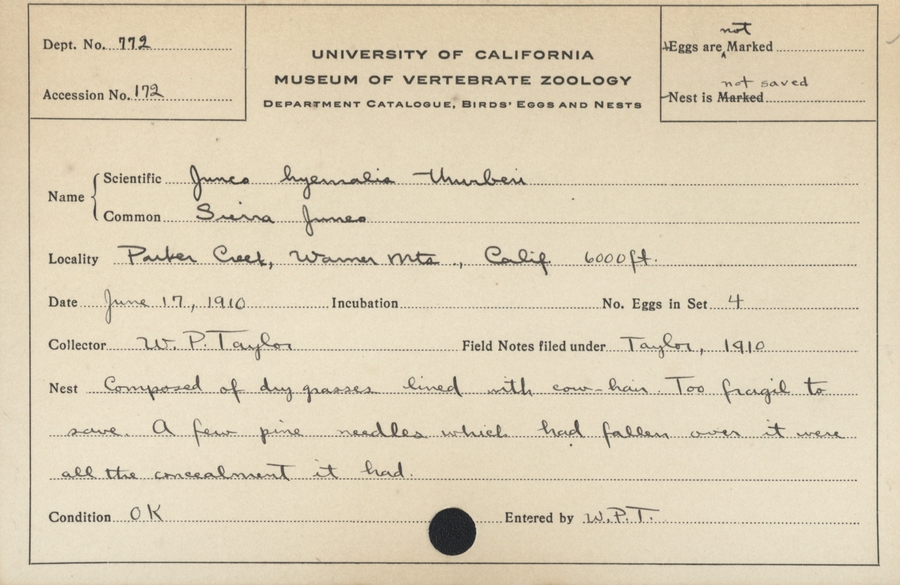 Dept. No. 772
Accession No. 172
UNIVERSITY OF CALIFORNIA
MUSEUM OF VERTEBRATE ZOOLOGY
DEPARTMENT CATALOGUE, BIRDS' EGGS AND NESTS
Eggs are not Marked
not saved
Nest is Marked
Name
Scientific Junco hyemalis thurberi
Common Sierra Junco
Locality Parker Creek, Warner Mts., Calif 6000 ft.
Date June 17, 1910 Incubation No. Eggs in Set 4
Collector W. P. Taylor Field Notes filed under Taylor, 1910
Nest Composed of dry grasses lined with cow-hair. Too fragil to
save. A few pine needles which had fallen over it were
all the concealment it had.
Condition OK Entered by W.P.T.